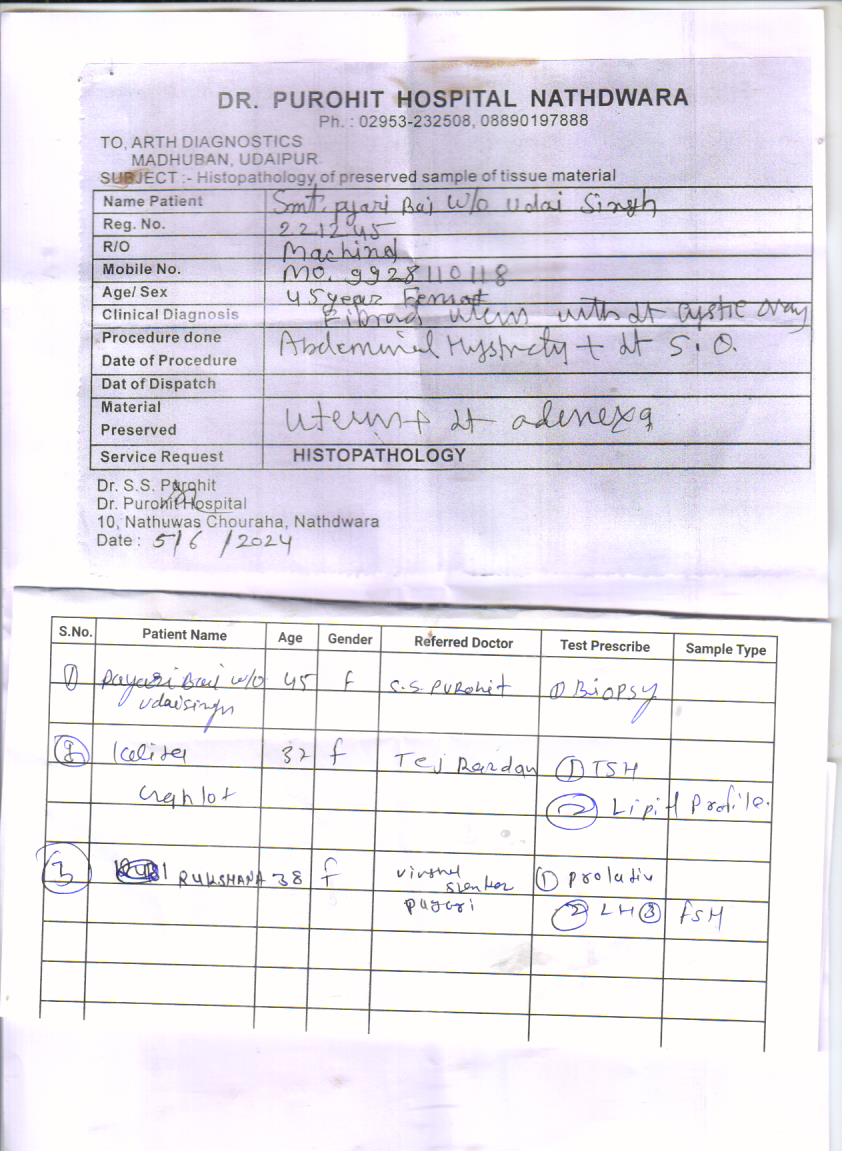 DR. PUROHIT HOSPITAL NATHDWARA
Ph. : 02953-232508, 08890197888
TO, ARTH DIAGNOSTICS
MADHUBAN, UDAIPUR
SUBJECT :- Histopathology of preserved sample of tissue material
Name Patient Smt. pyari Bai w/o Udai Singh
Reg. No. 221245
R/O Machind
Mobile No. Mo. 9928110118
Age/ Sex 45 year Female
Clinical Diagnosis Fibroid uterus with lt cystic ovary
Procedure done Abdominal Hystrcty + lt S.O.
Date of Procedure
Dat of Dispatch
Material
Preserved Uterus + lt adenexa
Service Request HISTOPATHOLOGY
Dr. S.S. Purohit
Dr. Purohit Hospital
10, Nathuwas Chouraha, Nathdwara
Date : 5/6/2024
S.No. Patient Name Age Gender Referred Doctor Test Prescribe Sample Type
1 payari Bai w/o 45 f S.S. PUROhit 1 Biopsy
Udaisingh
2 32 f Tej 1 TSH
Gehlot 2 Lipid Profile.
3 RUKSHANA 38 f 1 prolactin
2 LH 3 FSH